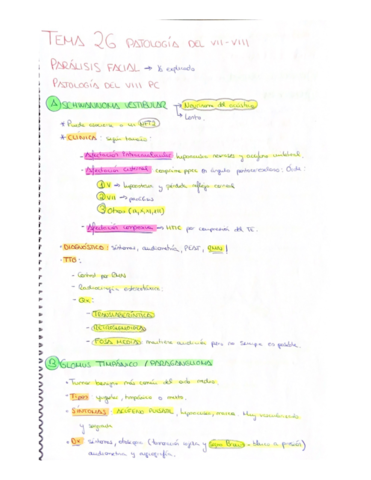 TEMA 26 PATOLOGÍA DEL VII-VIII
PARÁLISIS FACIAL → Ya explicada
PATOLOGÍA DEL VIII PC
A SCHWANNOMA VESTIBULAR → Neurinoma del acústico
→ Lento.
* Puede asociarse a una NF2
* CLÍNICA: según tamaño:
- Afectación Intracanalicular: hipoacusia neurosens y acúfeno unilateral.
- Afectación cisternal: comprime ppcc en ángulo pontocerebeloso. Orden:
① V → hipoestesia y pérdida reflejo corneal
② VII → parálisis
③ Otros
- Afectación compresiva → HTIC por compresión del TE.
- DIAGNÓSTICO: síntomas, audiometría, PEAT, RMN!
- TTO:
- Control por RMN
- Radiocirugía estereotáxica.
- Qx:
- TRANSLABERÍNTICA
- RETROSIGMOIDEA
- FOSA MEDIA: mantiene audición pero no siempre es posible.
B GLOMUS TIMPÁNICO / PARAGANGLIOMA
- Tumor benigno más común del oído medio.
- Tipos: yugular, timpánico o mixto.
- SÍNTOMAS: ACÚFENO PULSÁTIL, hipoacusia, Muy vascularizado
y sangrante
- Dx: síntomas, otoscopia (formación rojiza y signo Brown - blanco a presión)
audiometría y angiografía.